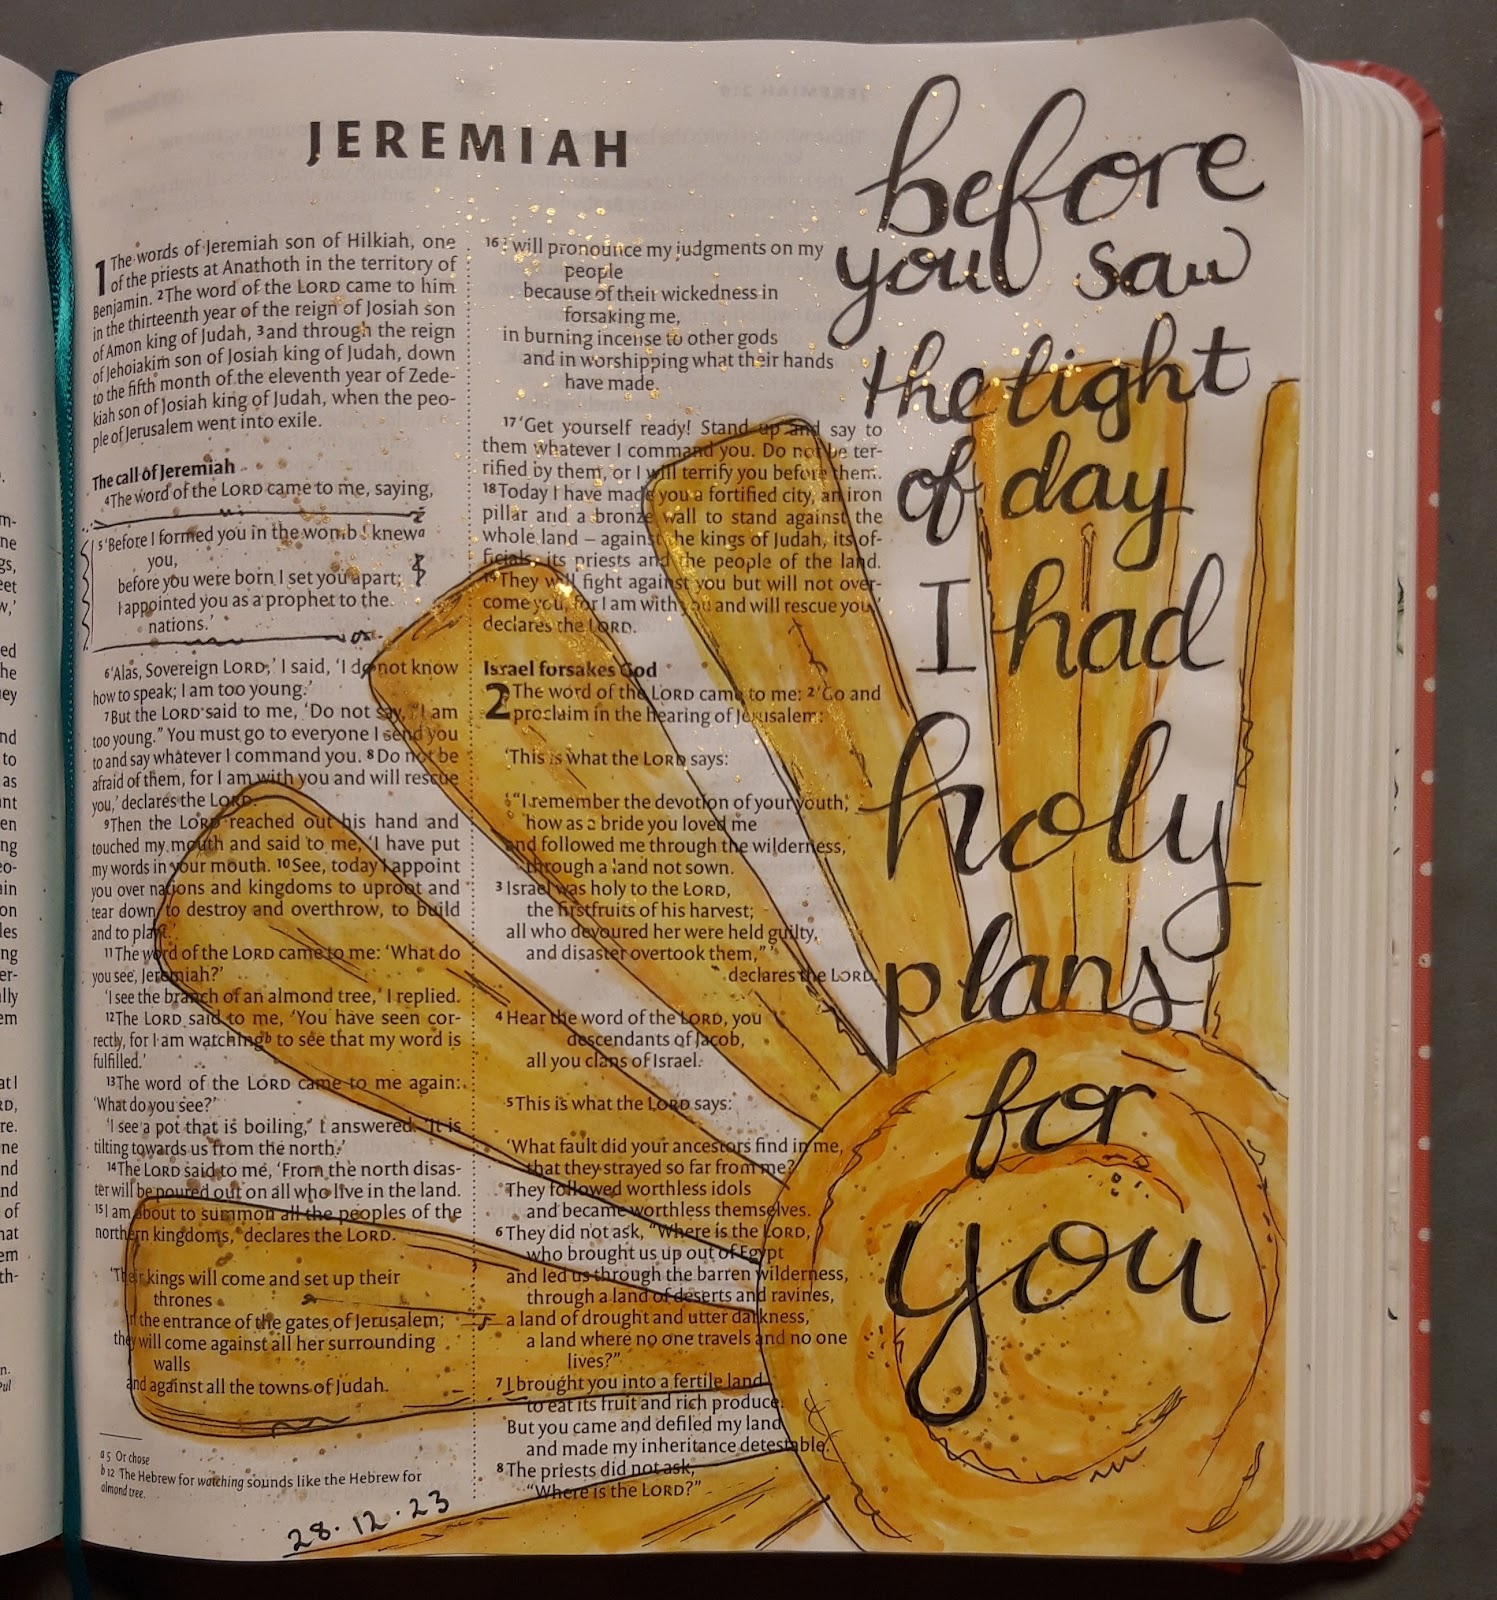 JEREMIAH
1 The words of Jeremiah son of Hilkiah, one
of the priests at Anathoth in the territory of
Benjamin. 2The word of the LORD came to him
in the thirteenth year of the reign of Josiah son
of Amon king of Judah, 3and through the reign
of Jehoiakim son of Josiah king of Judah, down
to the fifth month of the eleventh year of Zede-
kiah son of Josiah king of Judah, when the peo-
ple of Jerusalem went into exile.
The call of Jeremiah
4The word of the LORD came to me, saying,
5‘Before I formed you in the womb I knewa
you,
before you were born I set you apart;
I appointed you as a prophet to the
nations.’
6‘Alas, Sovereign LORD,’ I said, ‘I do not know
how to speak; I am too young.’
7But the LORD said to me, ‘Do not say, “I am
too young.” You must go to everyone I send you
to and say whatever I command you. 8Do not be
afraid of them, for I am with you and will rescue
you,’ declares the LORD.
9Then the LORD reached out his hand and
touched my mouth and said to me, ‘I have put
my words in your mouth. 10See, today I appoint
you over nations and kingdoms to uproot and
tear down, to destroy and overthrow, to build
and to plant.’
11The word of the LORD came to me: ‘What do
you see, Jeremiah?’
‘I see the branch of an almond tree,’ I replied.
12The LORD said to me, ‘You have seen cor-
rectly, for I am watchingb to see that my word is
fulfilled.’
13The word of the LORD came to me again:
‘What do you see?’
‘I see a pot that is boiling,’ I answered. ‘It is
tilting towards us from the north.’
14The LORD said to me, ‘From the north disas-
ter will be poured out on all who live in the land.
15I am about to summon all the peoples of the
northern kingdoms,’ declares the LORD.
‘Their kings will come and set up their
thrones
in the entrance of the gates of Jerusalem;
they will come against all her surrounding
walls
and against all the towns of Judah.
a 5 Or chose
b 12 The Hebrew for watching sounds like the Hebrew for
almond tree.
28.12.23
16I will pronounce my judgments on my
people
because of their wickedness in
forsaking me,
in burning incense to other gods
and in worshipping what their hands
have made.
17‘Get yourself ready! Stand up and say to
them whatever I command you. Do not be ter-
rified by them, or I will terrify you before them.
18Today I have made you a fortified city, an iron
pillar and a bronze wall to stand against the
whole land – against the kings of Judah, its of-
ficials, its priests and the people of the land.
19They will fight against you but will not over-
come you, for I am with you and will rescue you,’
declares the LORD.
Israel forsakes God
2 The word of the LORD came to me: 2‘Go and
proclaim in the hearing of Jerusalem:
‘This is what the LORD says:
‘“I remember the devotion of your youth,
how as a bride you loved me
and followed me through the wilderness,
through a land not sown.
3 Israel was holy to the LORD,
the firstfruits of his harvest;
all who devoured her were held guilty,
and disaster overtook them,”’
declares the LORD.
4 Hear the word of the LORD, you
descendants of Jacob,
all you clans of Israel.
5 This is what the LORD says:
‘What fault did your ancestors find in me,
that they strayed so far from me?
They followed worthless idols
and became worthless themselves.
6 They did not ask, “Where is the LORD,
who brought us up out of Egypt
and led us through the barren wilderness,
through a land of deserts and ravines,
a land of drought and utter darkness,
a land where no one travels and no one
lives?”
7 I brought you into a fertile land
to eat its fruit and rich produce.
But you came and defiled my land
and made my inheritance detestable.
8 The priests did not ask,
“Where is the LORD?”
before
you saw
the light
of day
I had
holy
plans
for
you